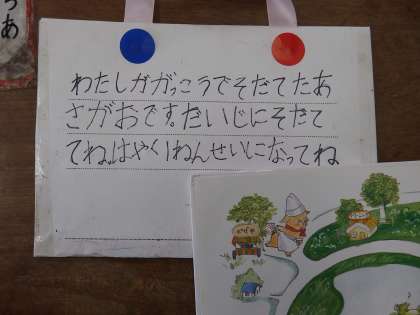 わたしががっこうでそだてたあ
さがおです。だいじにそだて
てね。はやく1ねんせいになってね